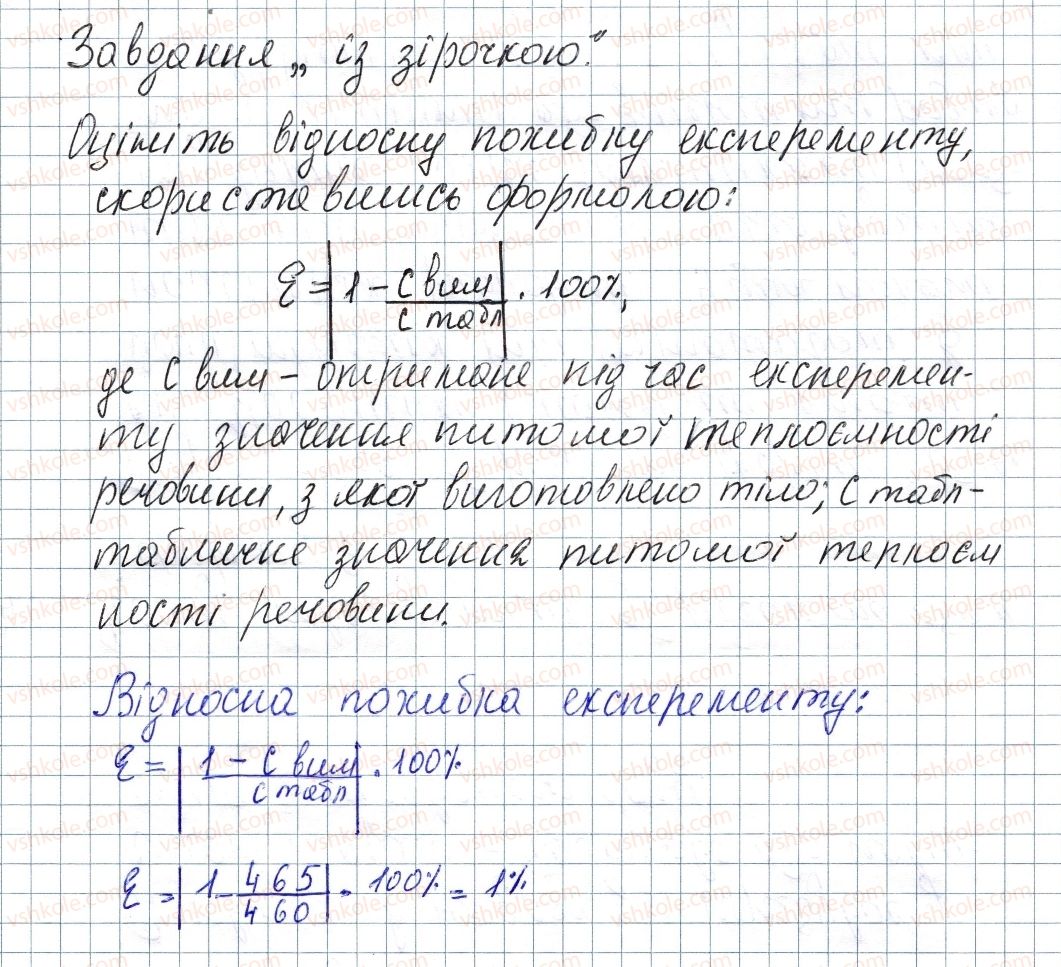 Завдання „ із зірочкою."
Оцініть відносну похибку експеременту,
скориставшись формолою:
ε = |1 - C вим / C табл| · 100%,
де C вим - отримане під час експеремен-
ту значення питомої теплоємності
речовини, з якої виготовлено тіло; C табл -
табличне значення питомої теплоєм
ності речовини.
Відносна похибка експеременту:
ε = |1 - C вим / C табл| · 100%
ε = |1 - 465 / 460| · 100% = 1%